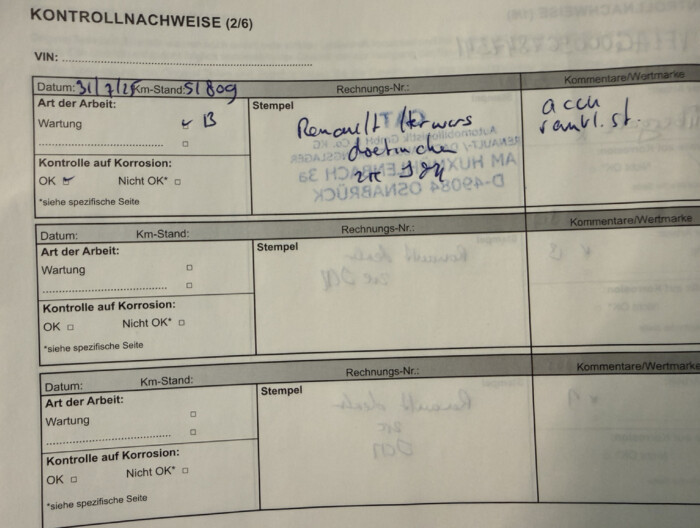 KONTROLLNACHWEISE (2/6)
VIN:
Datum: 31/7/25 Km-Stand: 51809 Rechnungs-Nr.: Kommentare/Wertmarke
Art der Arbeit: Stempel
Wartung B
Renault
accu
Kontrolle auf Korrosion:
OK Nicht OK*
*siehe spezifische Seite
Datum: Km-Stand: Rechnungs-Nr.: Kommentare/Wertmarke
Art der Arbeit: Stempel
Wartung
Kontrolle auf Korrosion:
OK Nicht OK*
*siehe spezifische Seite
Datum: Km-Stand: Rechnungs-Nr.: Kommentare/Wertmarke
Art der Arbeit: Stempel
Wartung
Kontrolle auf Korrosion:
OK Nicht OK*
*siehe spezifische Seite